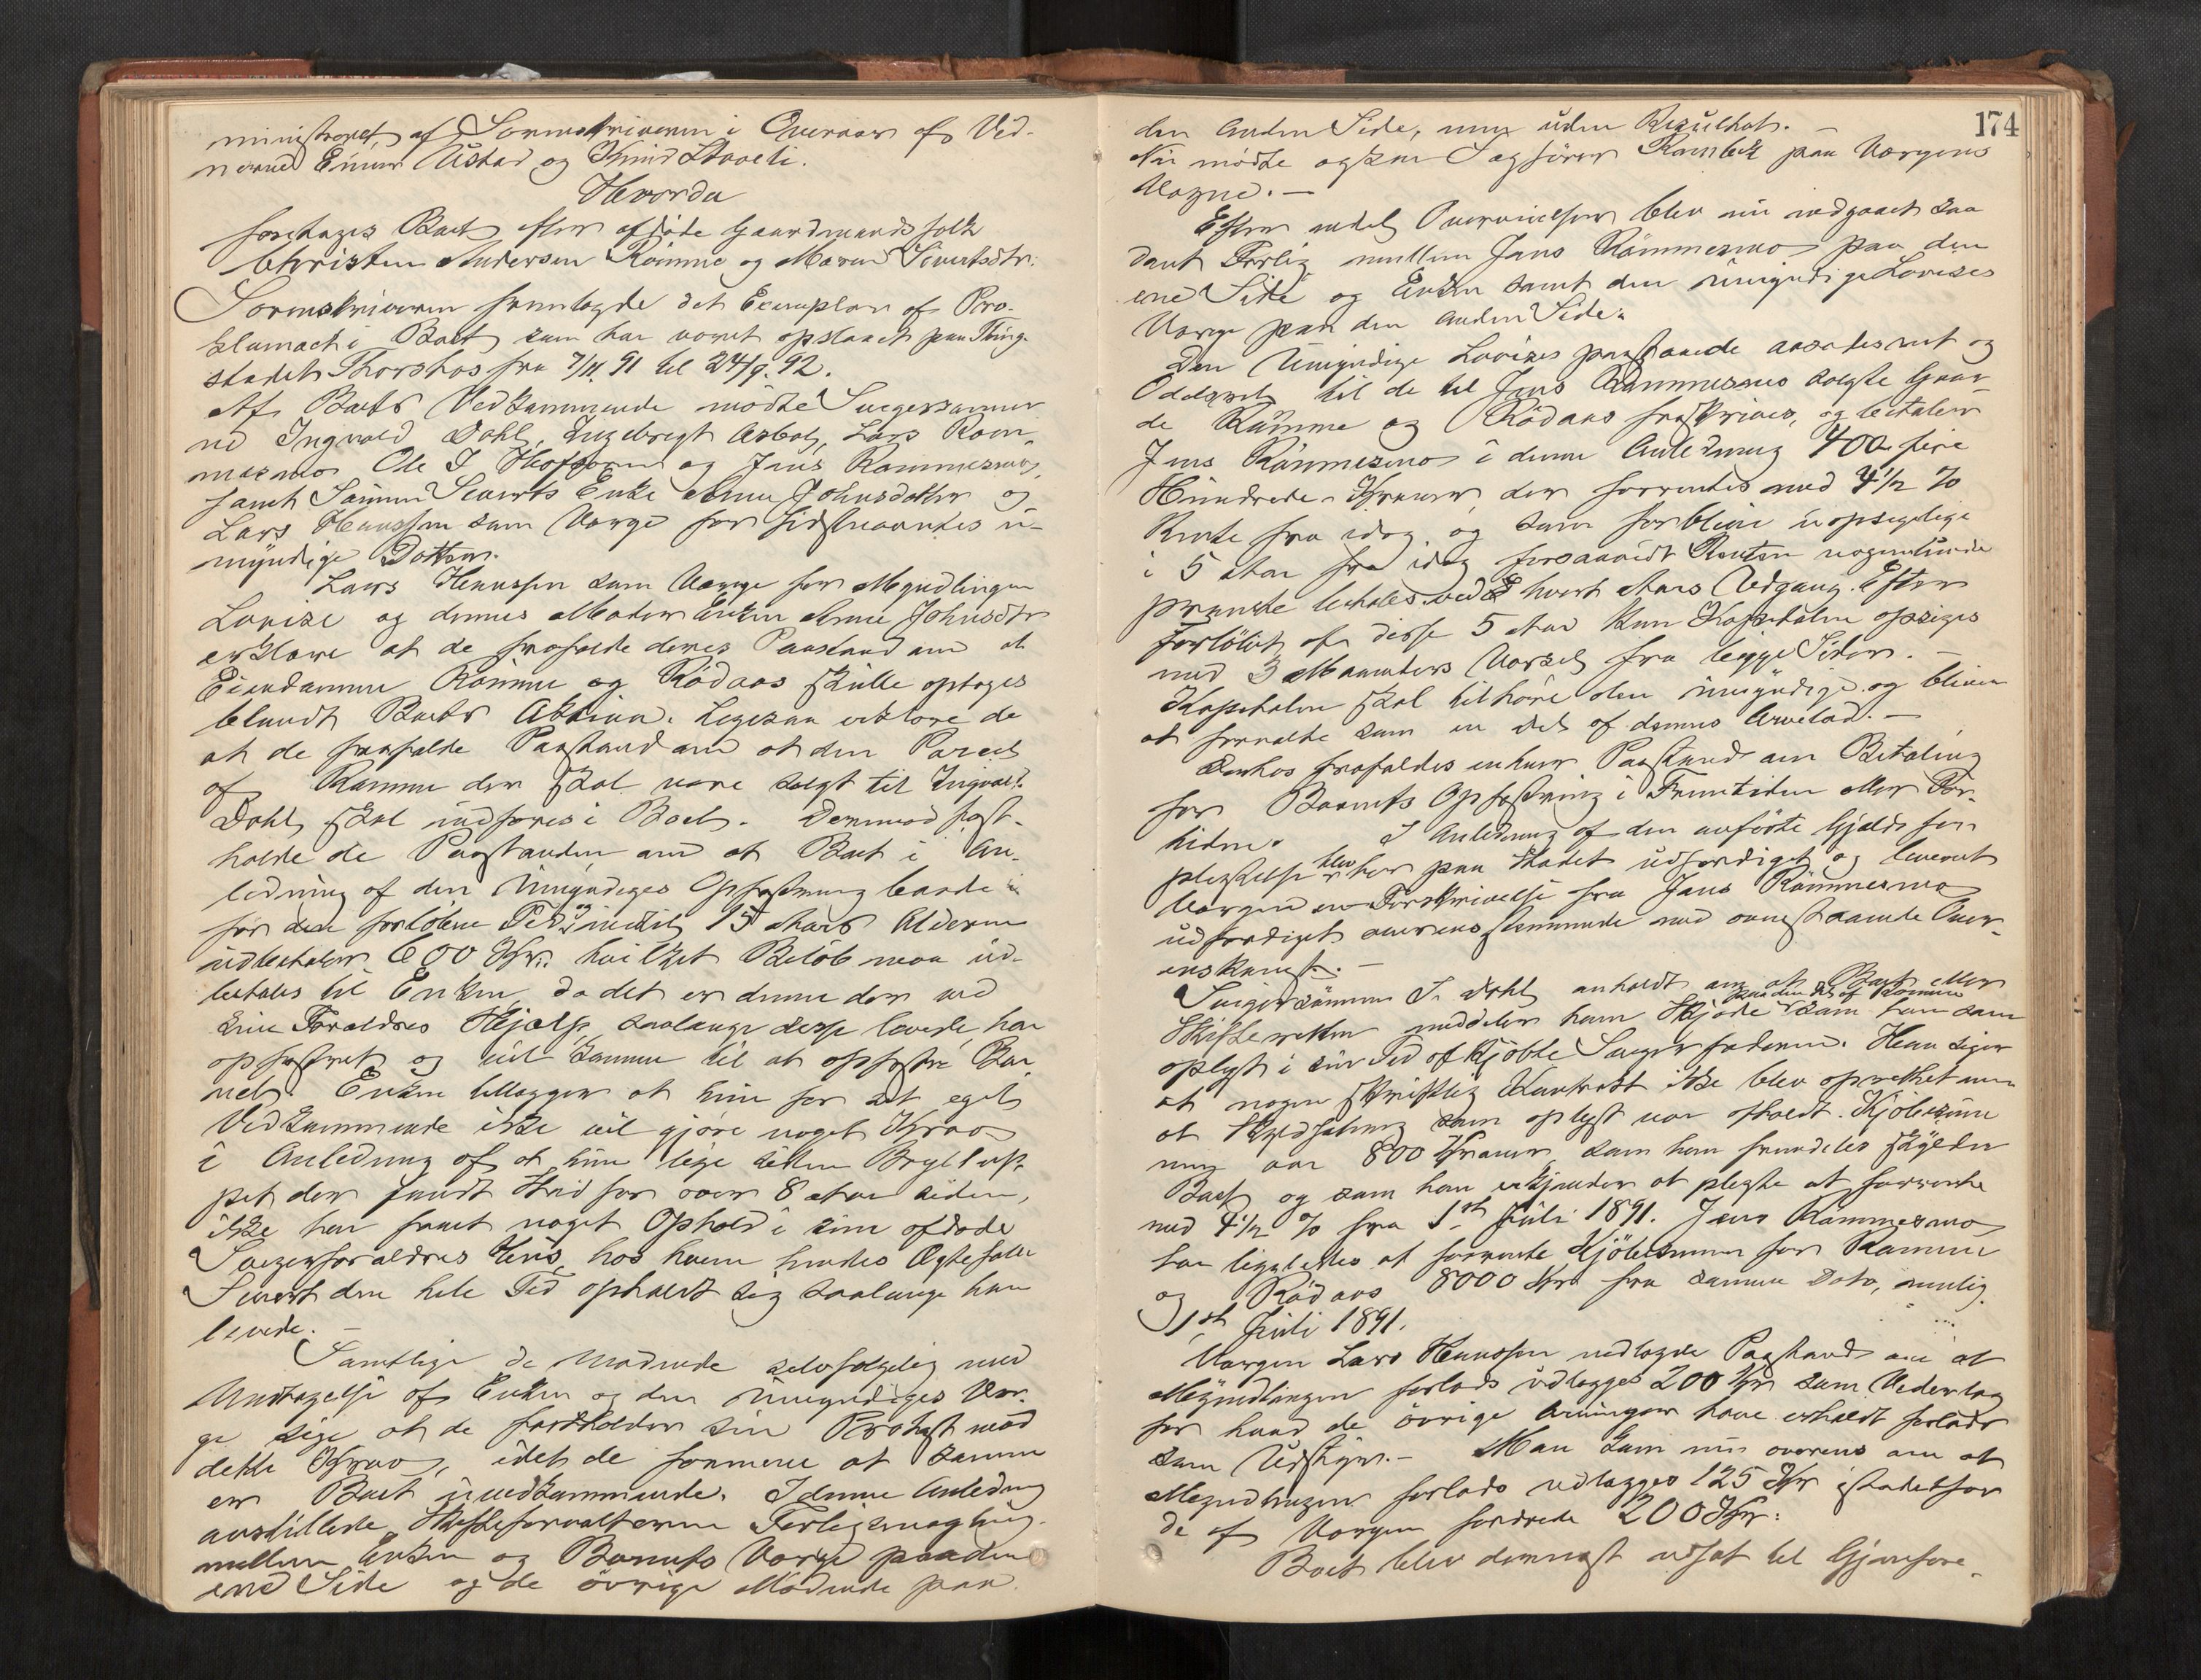 ministreret af Sorenskriveren i Overvær af Vid-
nerne Einar Ustad og Knud Staveli.
Hvorda
foretages Boet efter afdøde Gaardmandsfolk
Christen Andersen Römme og Maren Sivertsdtr:
Sorenskriveren fremlagde det Exemplar af Pro-
klamaet i Boet som har været opslaaet paa Thing-
stedet Thorshov fra 7/11. 91 til 24/9. 92.
Af Boets Vedkommende mødte Svigersønner-
ne Ingvald Dahl, Engebregt Asbøl, Lars Röm-
mesmo Ole I Hofsøren og Jens Rømmesmo,
samt Sönnen Siverts Enke Anne Johnsdatter og
Lars Hanssen som Værge for sidstnævntes u-
myndige Datter.
Lars Hanssen som Værge for Myndlingen
Lovise og dennes Moder Enken Anne Johnsdtr
erklære at de frafalde deres Paastand om at
Eiendomme Römme og Rödaas skulle optages
blandt Boets Aktiva. Ligesaa erklære de
at de frafalde Paastand om at den Parcel
af Rømme der skal være solgt til Ingvald
Dahl skal indføres i Boet. Derimod fast-
holde de Paastanden om at Boet i An-
ledning af den Umyndiges Opfostring baade
for den forløbne Tid og indtil 15 Aars Alderen
udbetaler 600 Kr. hvilket Beløb maa ud-
betales til Enken, da det er denne der ved
sine Forældres Hjælp, saalænge disse levede, har
opfostret og vil komme til at opfostre Bar-
net. Enken tillægger at hun for sit eget
Vedkommende ikke vil gjøre noget Krav
i Anledning af at hun lige siden Bryllup-
pet der fandt Sted for over 8 Aar siden,
ikke har faaet noget Ophold i sine afdøde
Svigerforældres Hus, hos hvem hendes Ægtefælle
Sivert den hele Tid opholdt sig saalænge han
levede. —
Samtlige de Mødende selvfølgelig med
Undtagelse af Enken og den Umyndiges Vær-
ge sige at de fastholder sin Protest mod
dette Krav, idet de formene at samme
er Boet uvedkommende. I denne Anledning
anstillede Skifteforvalteren Forligsmægling
mellem Enken og Barnets Værge paa den
ene Side og de övrige Mødende paa
174
den anden Side, men uden Resultat. —
Nu mødte ogsaa Sagfører Rambek paa Værgens
Vegne. —
Efter endel Overveielser blev nu indgaaet saa
dant Forlig mellem Jens Römmesmo paa den
ene Side og Enken samt den umyndige Lovises
Værge paa den anden Side:
Den Umyndige Lovises paastaaede Aasædesret og
Odelsret til de til Jens Rømmesmo solgte Gaar-
de Rømme og Rödaas fraskrives, og betaler
Jens Römmesmo i denne Anledning 400 fire
Hundrede Kroner, der forrentes med 4 1/2 %
Rente fra idag og som forblive uopsigelige
i 5 Aar fra idag forsaavidt Renten nogenlunde
præcise betales ved hvert Aars Udgang. Efter
Forløbet af disse 5 Aar kan Kapitalen opsiges
med 3 Maaneders Varsel fra begge Sider. —
Kapitalen skal tilhøre den umyndige og bliver
at forvalte som en Del af dennes Arvelod. —
Derhos frafaldes enhver Paastand om Betaling
for Barnets Opfostring i Fremtiden eller For-
tiden. I Anledning af den anførte Gjeldsfor-
pligtelse blev her paa Stedet udfærdiget og leveret
Værgen en Forskrivelse fra Jens Römmesmo
udfærdiget overensstemmende med ovenstaaende Over-
enskomst. —
Svigersönnen I. Dahl anholdt om at Boet eller
Skifteretten meddeler ham Skjøde paa den Del af Römme som han som
oplyst i sin Tid af kjøbte Svigerfaderen. Han siger
at nogen skriftlig Kontrakt ikke blev oprettet men
at Skyldsætning som oplyst var afholdt. Kjøbesum-
men var 800 Kroner, som han fremdeles skylder
Boet og som han erkjender at pligte at forrente
med 4 1/2 % fra 1st Juli 1891. Jens Rømmesmo
har ligeledes at forrente Kjöbesummen for Rømme
og Rödaas 8000 Kr. fra samme Dato, nemlig
1st Juli 1891.
Værgen Lars Hanssen nedlagde Paastand om at
Myndlingen forlods udlægges 200 Kr som Vederlag
for hvad de övrige Arvinger have erholdt forlods
som Udstyr. — Man kom nu overens om at
Myndlingen forlods udlægges 125 Kr istedetfor
de af Værgen fordrede 200 Kr.
Boet blev dernæst udsat til Gjenfore-